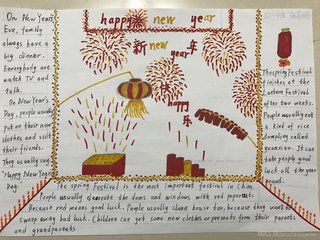 happy new year
On New Year's
Eve, family
always have a
big dinner.
Everybody are
watch TV and
talk.
On New Year's
Day, people usually
put on their new
clothes and visit
their friends.
They usually say
"Happy New Year's
Day.
新 年
new year
快
happy
乐
The spring Festival
finishes at the
Lantern Festival
after two weeks.
People usually eat
a kind of rice
dumpling called
yuanxiao. It can
take people good
luck all the year
round.
The spring Festival is the most important festival in China.
People usually decorate the doors and windows with red papercuts.
Because red means good luck. People usually clean house too, because they want to
sweep away bad luck. Children can get some new clothes or presents from their parents
and grandparents